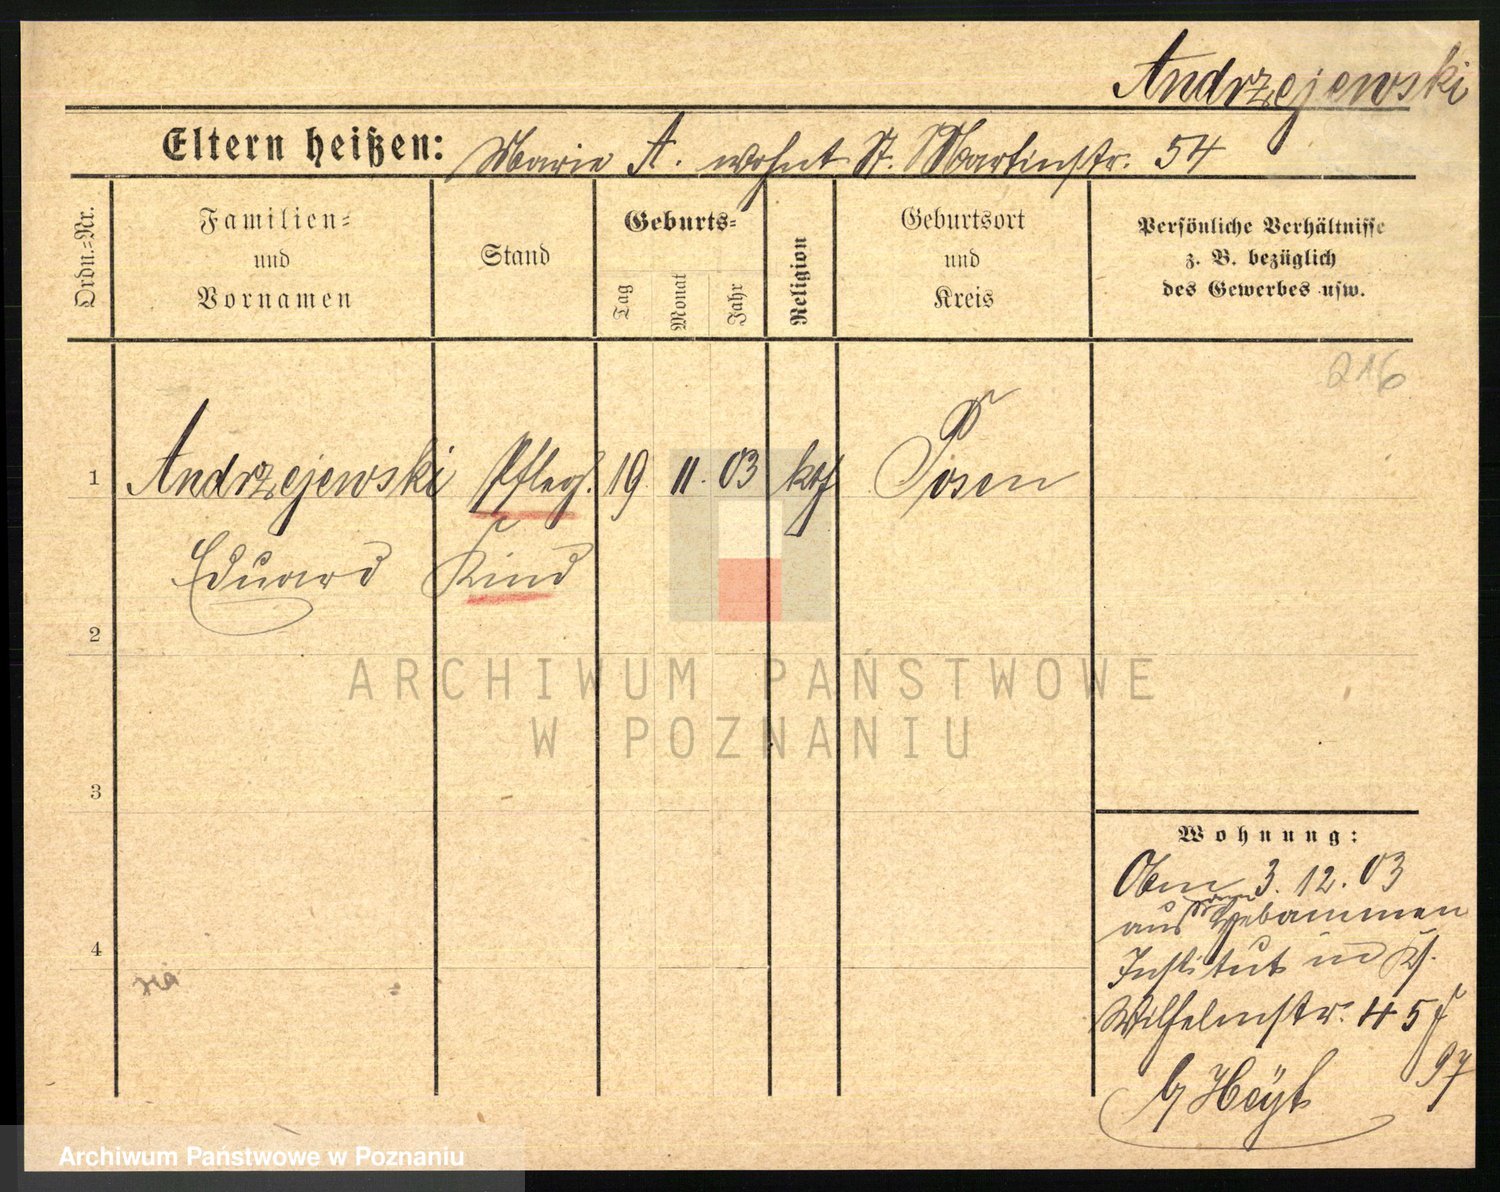 Andrzejewski
Eltern heißen: Marie A. wohnt St. Martinstr. 54
Ordn.=Nr.
Familien=
und
Vornamen
Stand
Geburts=
Tag
Monat
Jahr
Religion
Geburtsort
und
Kreis
Persönliche Verhältnisse
z. B. bezüglich
des Gewerbes usw.
216
1 Andrzejewski Pfleg. 19. 11. 03 kth Posen
Eduard Kind
2
3
4
ARCHIWUM PAŃSTWOWE
W POZNANIU
Wohnung:
3. 12. 03
aus Hebammen
Institut in
Wilhelmstr. 45
97
Archiwum Państwowe w Poznaniu